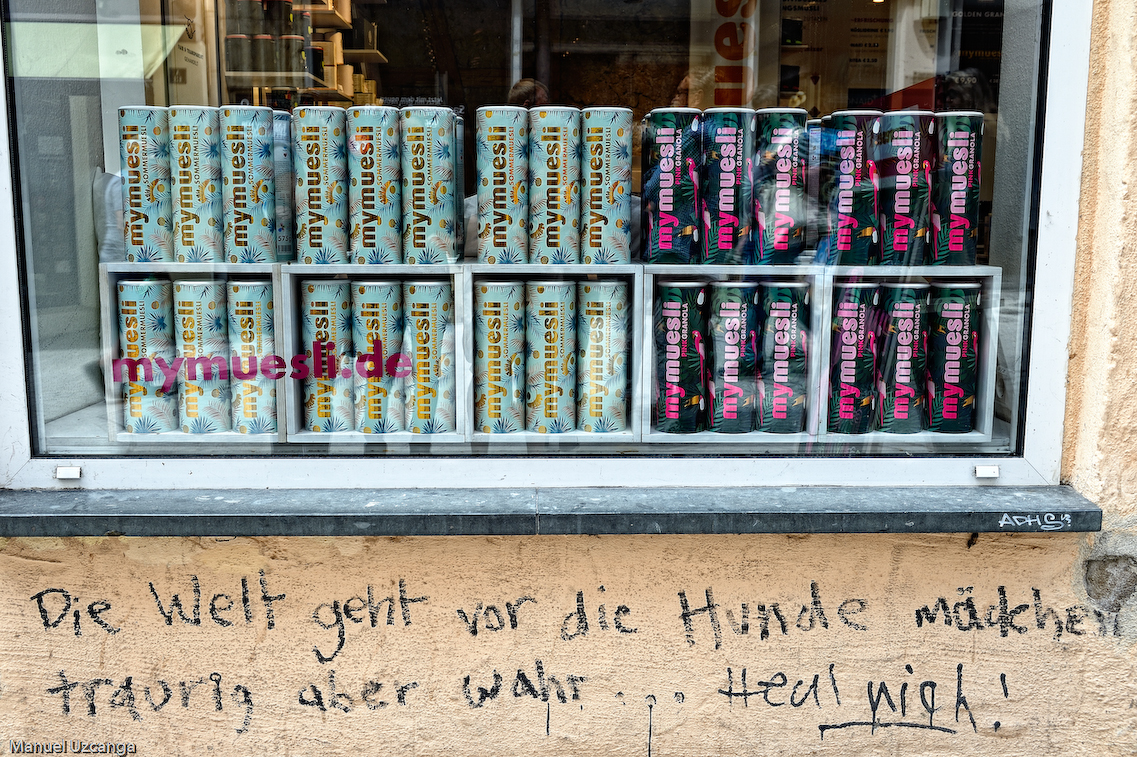 mymuesli SOMMERMUESLI
mymuesli PINKGRANOLA
mymuesli.de
ADHS
Die Welt geht vor die Hunde mädchen
traurig aber wahr.... Heul nich!
Manuel Uzcanga